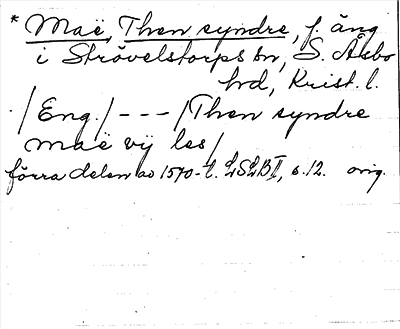 * Maë, Then syndre, f. äng
i Strövelstorps sn, S. Åsbo
hrd, Krist. l.
/Eng./ - - - /Then syndre
maë vij les/
förra delen av 1570-t. LSLB I, s. 12. orig.